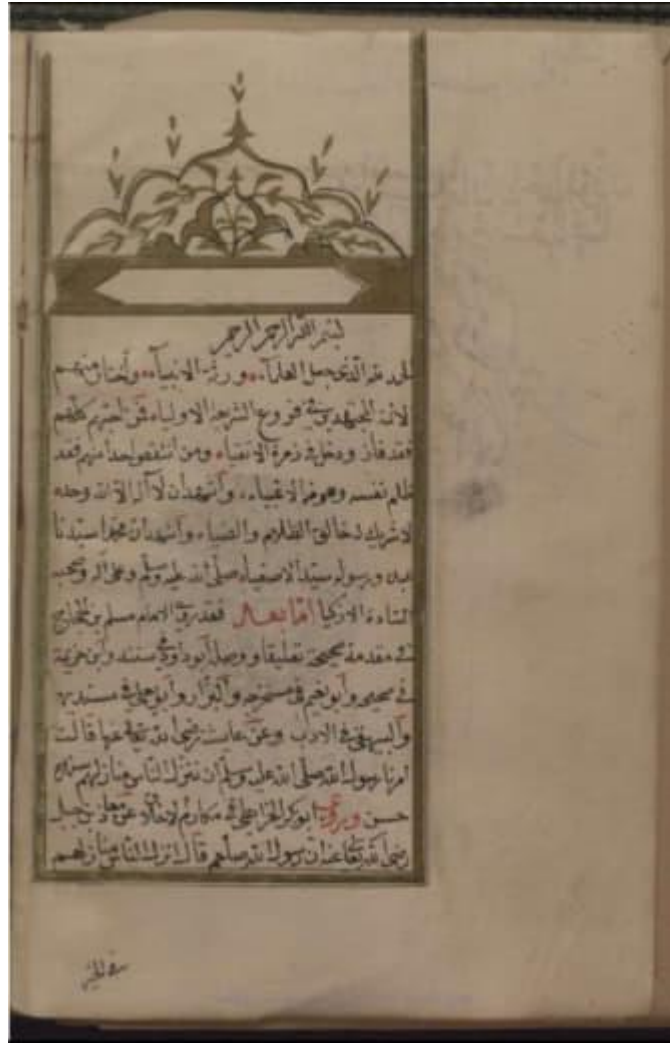 بسم الله الرحمن الرحيم
الحمد لله الذي جعل العلمآء ورثة الانبيآء واختار منهم
الائمة المجتهدين في فروع الشرعة الاولياء فمن احترم كلهم
فقد فاز ودخل في زمرة الاتقياء ومن انتقص احدا منهم فقد
ظلم نفسه وهو من الاغبياء واشهد ان لا اله الا الله وحده
لا شريك له خالق الظلام والضياء واشهد ان محمدا سيدنا
عبده ورسوله سيد الاصفياء صلى الله عليه وسلم وعلى اله وصحبه
السادة الازكيا اما بعد فقد روى الامام مسلم بن الحجاج
في مقدمة صحيحه تعليقا ووصله ابو داود في سننه وابن خزيمة
في صحيحه وابو نعيم في مستخرجه والبزار وابو يعلى في مسنديهما
والبيهقي في الادب وعن عايشة رضي الله تعالى عنها قالت
امرنا رسول الله صلى الله عليه وسلم ان ننزل الناس منازلهم سنده
حسن وروى ابو بكر الخرائطي في مكارم الاخلاق عن معاذ بن جبل
رضي الله تعالى عنه ان رسول الله صلعم قال انزل الناس منازلهم